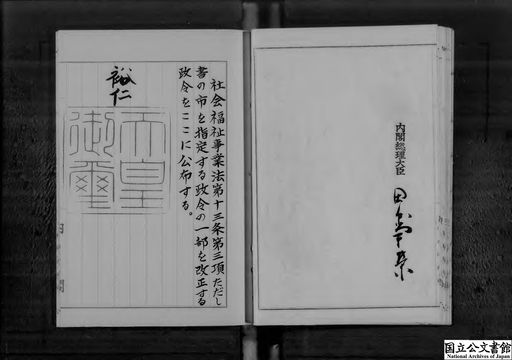 内閣総理大臣
田中角榮
社会福祉事業法第十三条第三項ただし
書の市を指定する政令の一部を改正する
政令をここに公布する。
裕仁
天皇
御璽
国立公文書館
National Archives of Japan